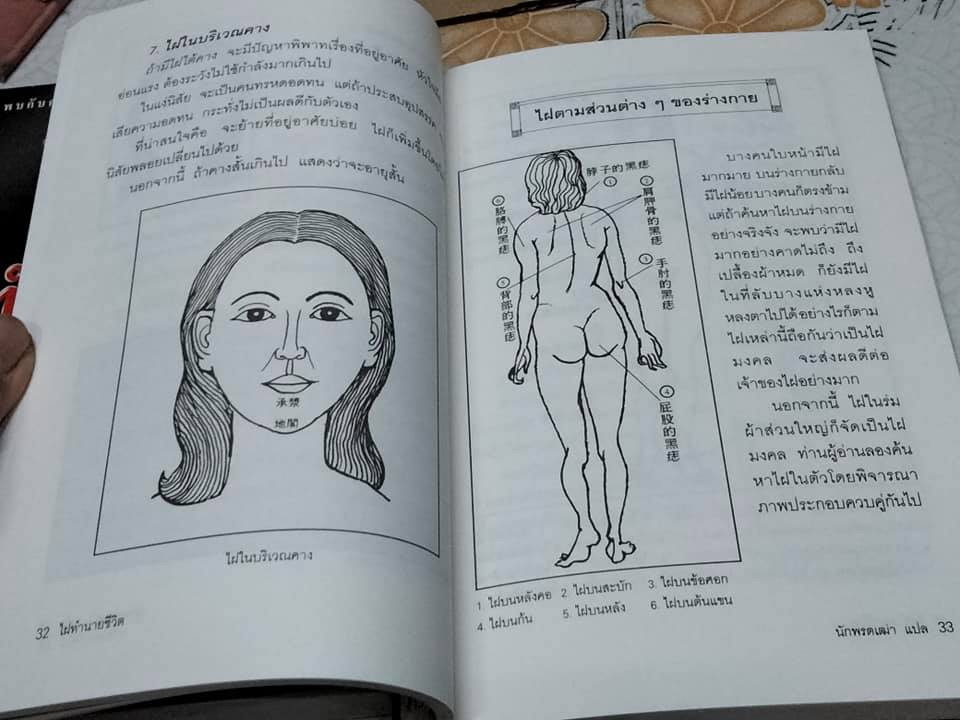 7. ไฝในบริเวณคาง
ถ้ามีไฝใต้คาง จะมีปัญหาพิพาทเรื่องที่อยู่อาศัย หัวใจ
อ่อนแรง ต้องระวังไม่ใช้กำลังมากเกินไป
ในแง่นิสัย จะเป็นคนทรหดอดทน แต่ถ้าประสบอุปสรรค
เสียความอดทน กระทั่งไม่เป็นผลดีกับตัวเอง
ที่น่าสนใจคือ จะย้ายที่อยู่อาศัยบ่อย ไฝก็เพิ่มขึ้น
นิสัยพลอยเปลี่ยนไปด้วย
นอกจากนี้ ถ้าคางสั้นเกินไป แสดงว่าจะอายุสั้น
承漿
地閣
ไฝในบริเวณคาง
32 ไฝทำนายชีวิต
ไฝตามส่วนต่าง ๆ ของร่างกาย
脖子的黑痣
①
②
肩胛骨的黑痣
⑥
胳膊的黑痣
③
手肘的黑痣
⑤
背部的黑痣
④
屁股的黑痣
บางคนใบหน้ามีไฝ
มากมาย บนร่างกายกลับ
มีไฝน้อย บางคนก็ตรงข้าม
แต่ถ้าค้นหาไฝบนร่างกาย
อย่างจริงจัง จะพบว่ามีไฝ
มากอย่างคาดไม่ถึง ถึง
เปลื้องผ้าหมด ก็ยังมีไฝ
ในที่ลับบางแห่งหลงหู
หลงตาไปได้ อย่างไรก็ตาม
ไฝเหล่านี้ถือกันว่าเป็นไฝ
มงคล จะส่งผลดีต่อ
เจ้าของไฝอย่างมาก
นอกจากนี้ ไฝในร่ม
ผ้าส่วนใหญ่ก็จัดเป็นไฝ
มงคล ท่านผู้อ่านลองค้น
หาไฝในตัวโดยพิจารณา
ภาพประกอบควบคู่กันไป
1. ไฝบนหลังคอ 2. ไฝบนสะบัก 3. ไฝบนข้อศอก
4. ไฝบนก้น 5. ไฝบนหลัง 6. ไฝบนต้นแขน
นักพรตเฒ่า แปล 33